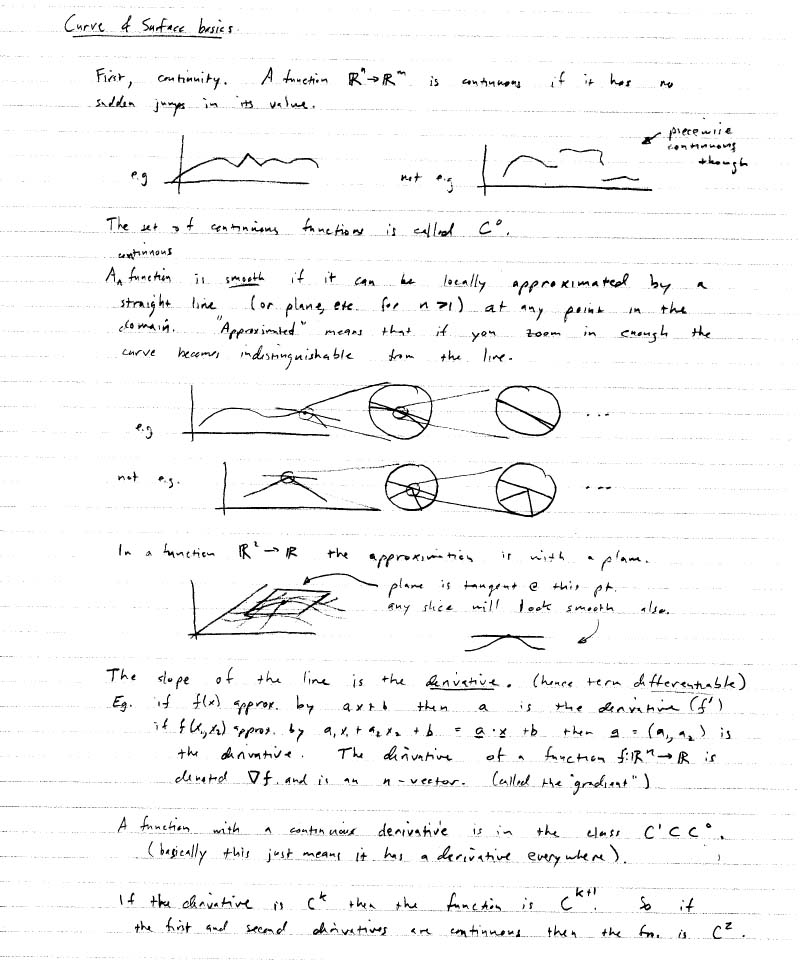 Curve & Surface basics.
First, continuity. A function ℝⁿ→ℝᵐ is continuous if it has no
sudden jumps in its value.
e.g
not e.g
piecewise
continuous
though
The set of continuous functions is called C⁰.
continuous
A ‸ function is smooth if it can be locally approximated by a
straight line (or plane, etc. for n>1) at any point in the
domain. "Approximated" means that if you zoom in enough the
curve becomes indistinguishable from the line.
e.g
...
not e.g.
...
In a function ℝ² → ℝ the approximation is with a plane.
plane is tangent @ this pt.
any slice will look smooth also.
The slope of the line is the derivative. (hence term differentiable)
Eg. if f(x) approx. by ax+b then a is the derivative (f')
if f(x₁,x₂) approx. by a₁x₁ + a₂x₂ + b = a·x + b then a = (a₁, a₂) is
the derivative. The derivative of a function f:ℝⁿ→ℝ is
denoted ∇f and is an n-vector. (called the "gradient")
A function with a continuous derivative is in the class C¹⊂C⁰.
(basically this just means it has a derivative everywhere).
If the derivative is Cᵏ then the function is Cᵏ⁺¹. So if
the first and second derivatives are continuous then the fn. is C².